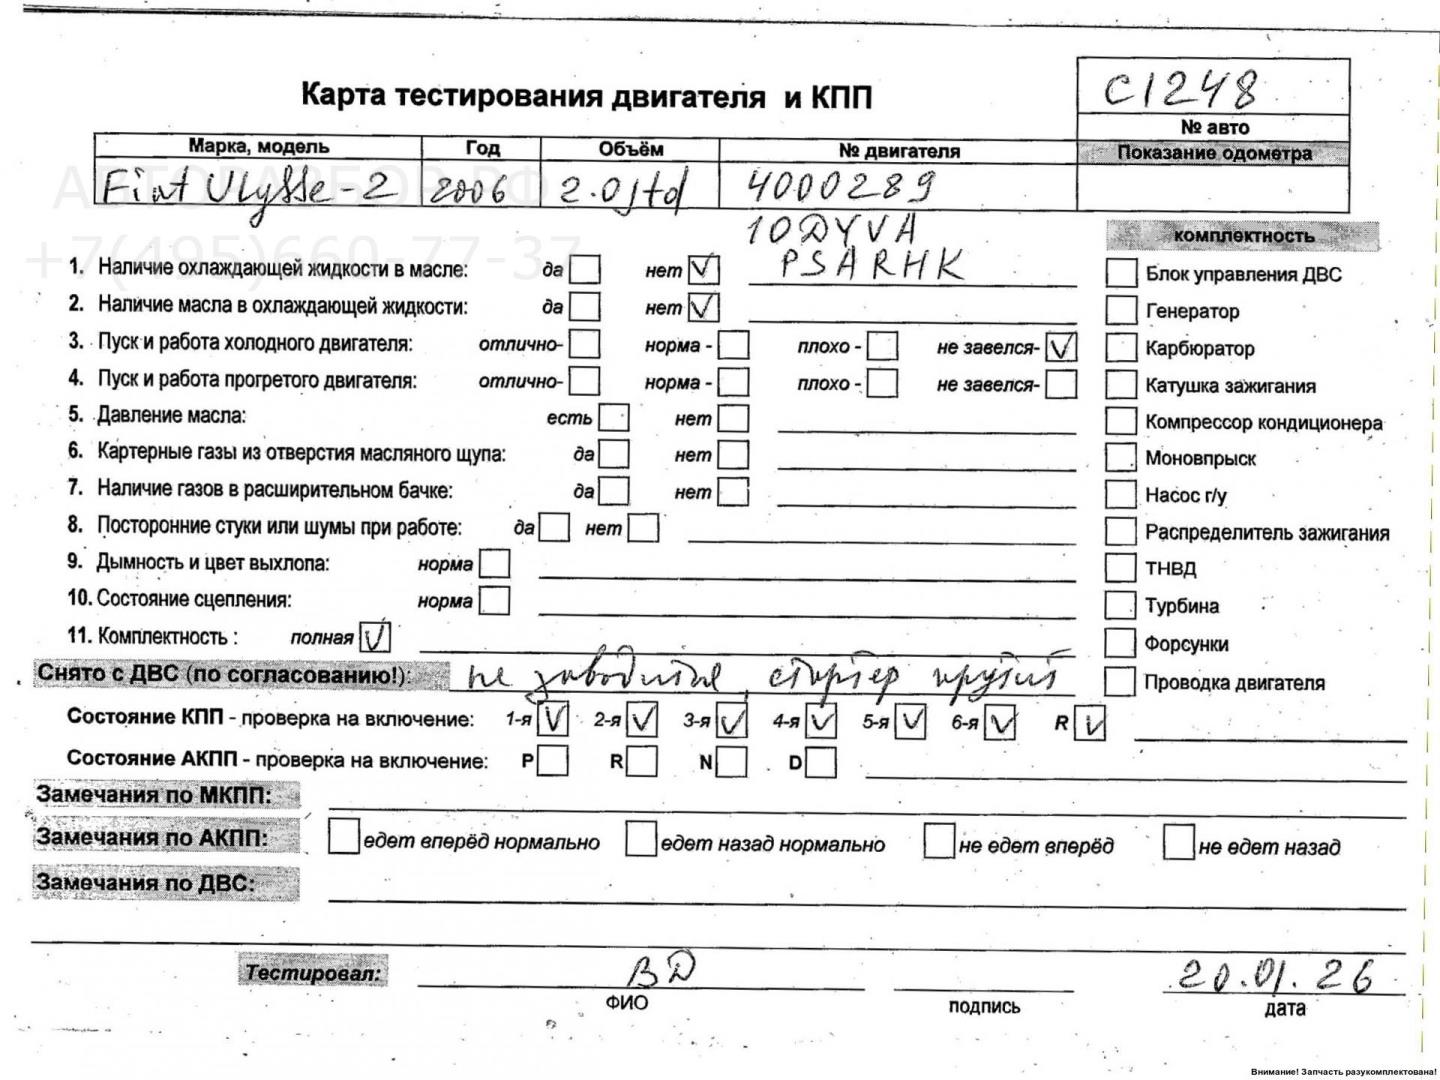 С1248
Карта тестирования двигателя и КПП
№ авто
Марка, модель Год Объём № двигателя Показание одометра
Fiat Ulysse-2 2006 2.0jtd 4000289
АВТОРАЗБОР.РФ
10DYVA
+7(495)660-77-37
комплектность
PSARHK
1. Наличие охлаждающей жидкости в масле: да нет
Блок управления ДВС
2. Наличие масла в охлаждающей жидкости: да нет
Генератор
3. Пуск и работа холодного двигателя: отлично- норма - плохо - не завелся-
Карбюратор
4. Пуск и работа прогретого двигателя: отлично- норма - плохо - не завелся-
Катушка зажигания
5. Давление масла: есть нет
Компрессор кондиционера
6. Картерные газы из отверстия масляного щупа: да нет
Моновпрыск
7. Наличие газов в расширительном бачке: да нет
Насос г/у
8. Посторонние стуки или шумы при работе: да нет
Распределитель зажигания
9. Дымность и цвет выхлопа: норма
ТНВД
10. Состояние сцепления: норма
Турбина
11. Комплектность : полная
Форсунки
Снято с ДВС (по согласованию!): не заводится, стартер крутит
Проводка двигателя
Состояние КПП - проверка на включение: 1-я 2-я 3-я 4-я 5-я 6-я R
Состояние АКПП - проверка на включение: P R N D
Замечания по МКПП:
Замечания по АКПП: едет вперёд нормально едет назад нормально не едет вперёд не едет назад
Замечания по ДВС:
Тестировал: ВД 20.01.26
ФИО подпись дата
Внимание! Запчасть разукомплектована!